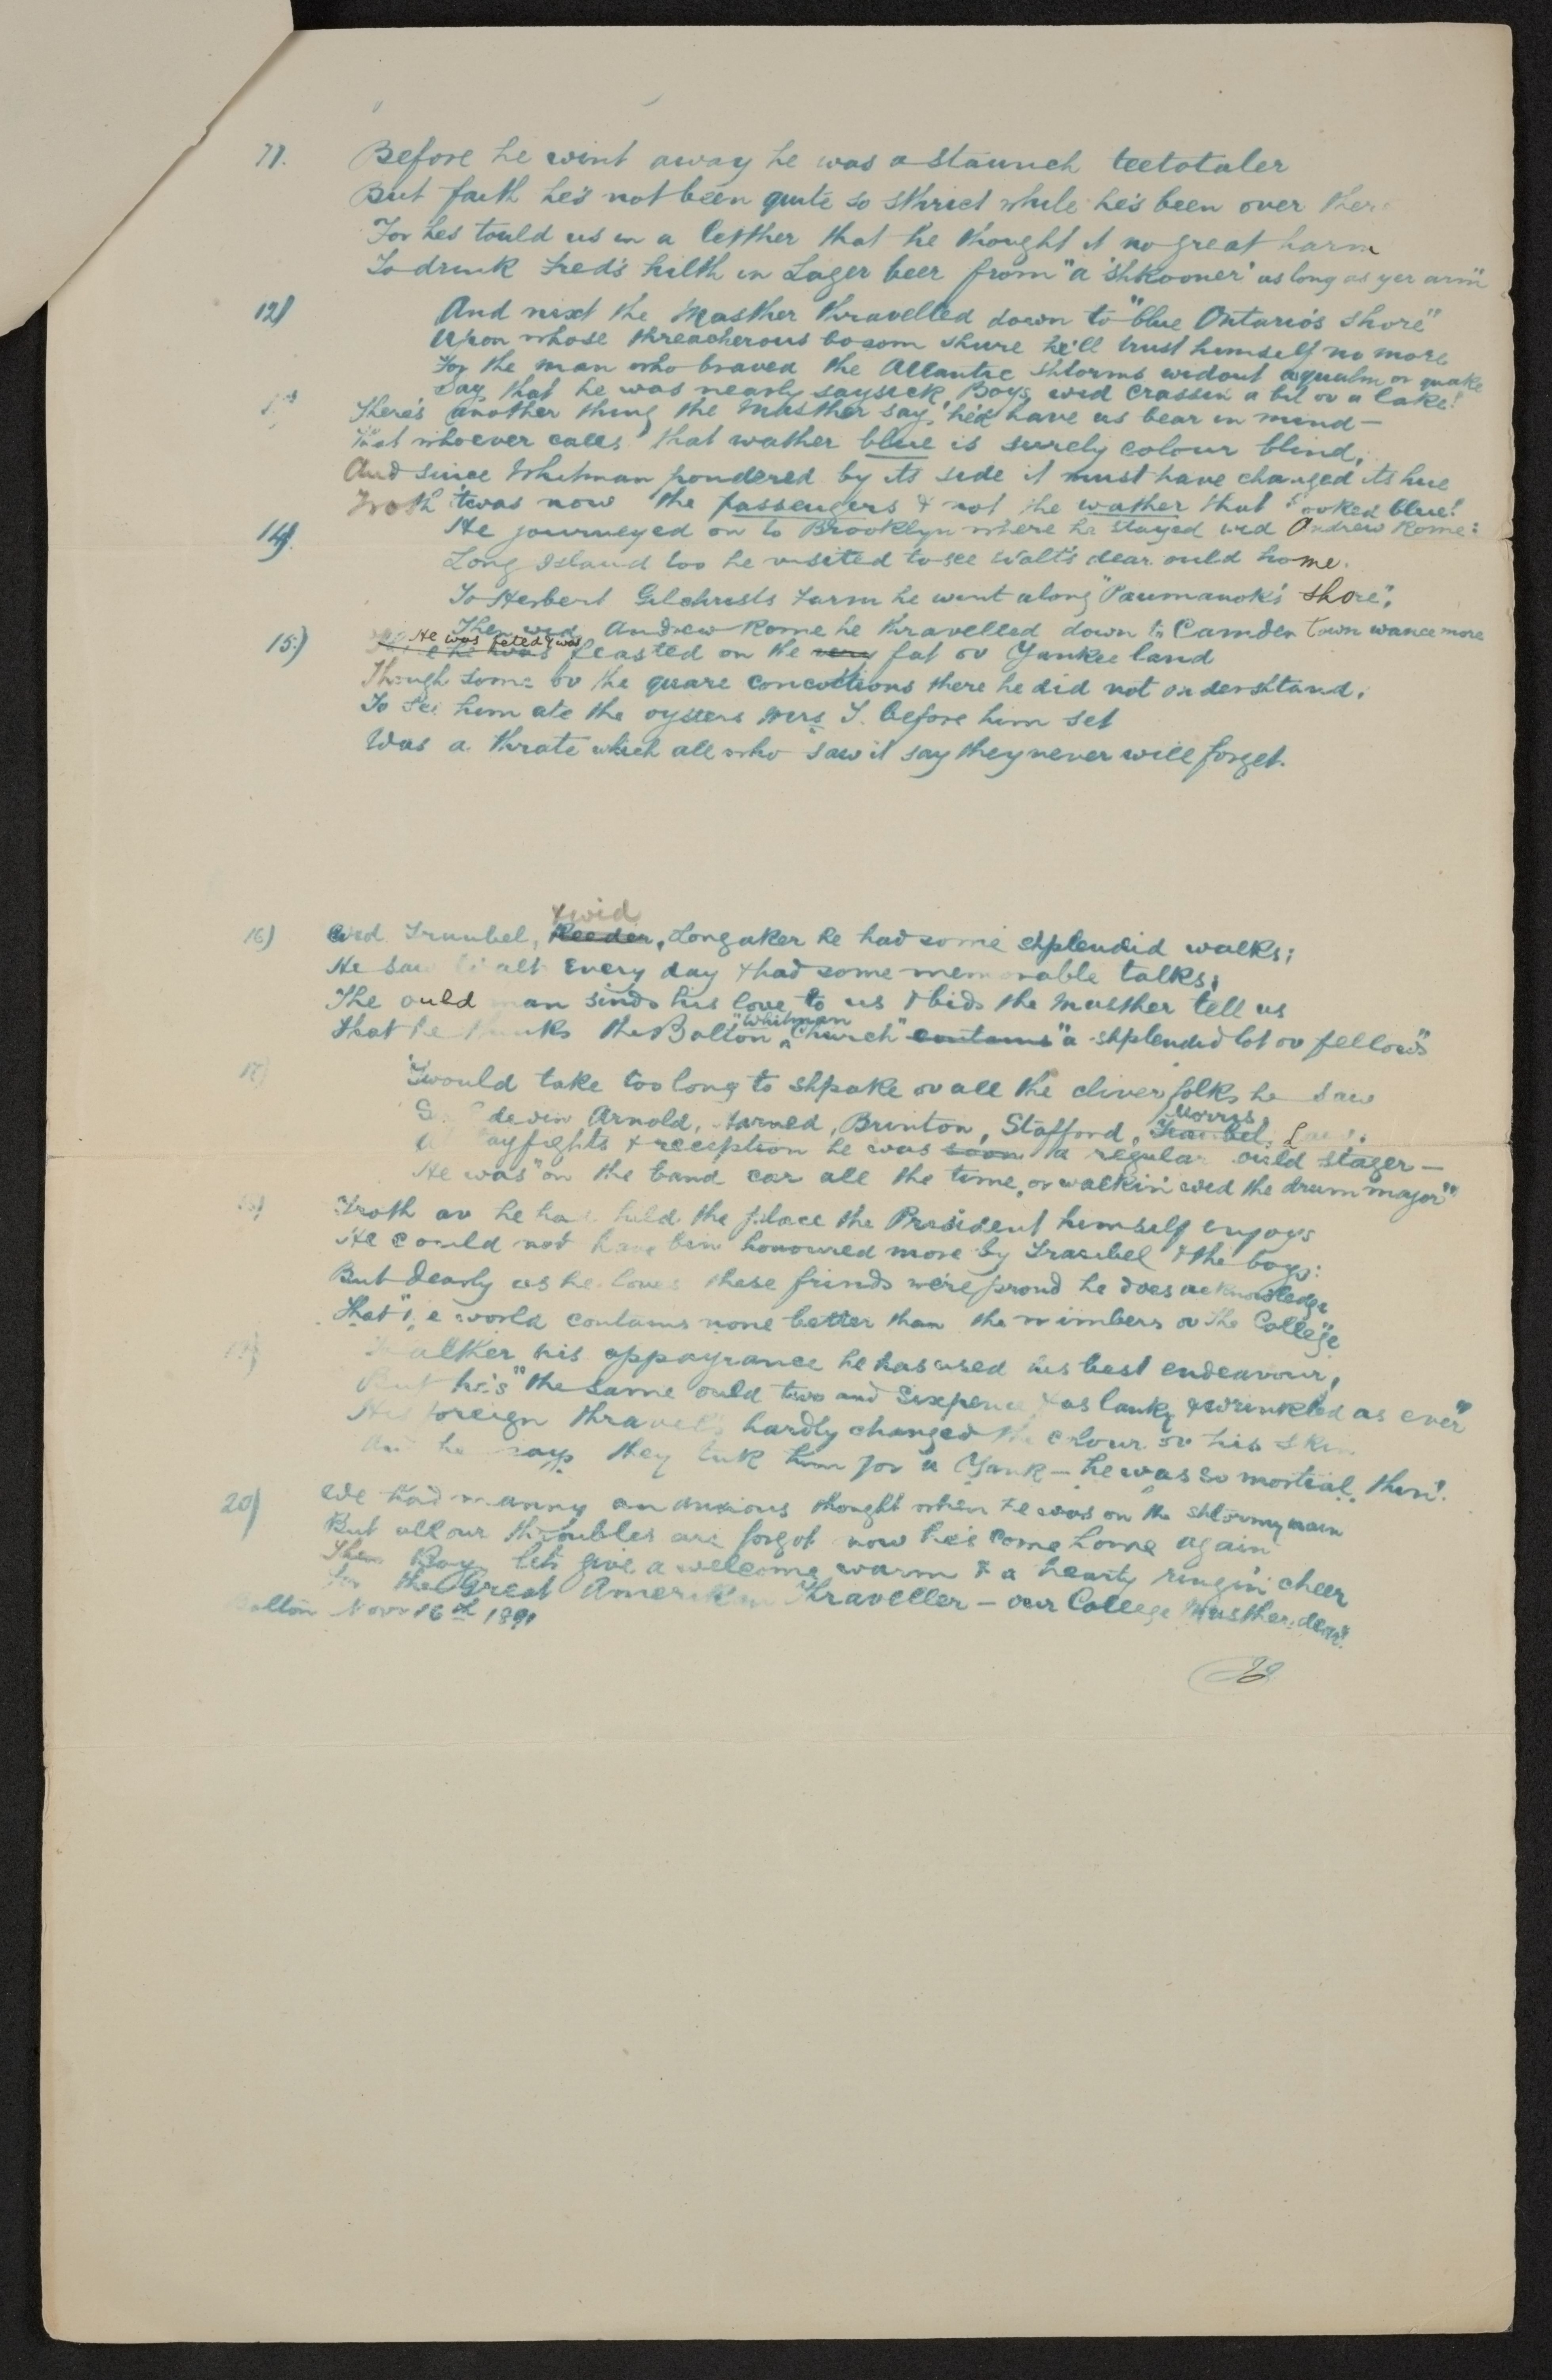 11.
Before he wint away he was a staunch teetotaler
But faith he's not been quite so sthrict while he's been over there
For he's tould us in a letther that he thought it no great harm
To drink Fred's hilth in Lager beer from "a 'shkooner' as long as yer arm"
12)
And nixt the Masther thravelled down to "blue Ontario's shore"
Upon whose threacherous bosom shure he'll trust himself no more
For the man who braved the Atlantic shtorms widout a qualm or quake
Say, that he was nearly saysick, Boys, wid crassin a bit ov a lake!
There's another thing the Masther say, he'd have us bear in mind —
That whoever calls that wather blue is surely colour blind,
And since Whitman pondered by its side it must have changed its hue
Troth 'twas now the passengers & not the wather that looked blue!
14).
He journeyed on to Brooklyn where he stayed wid Andrew Rome:
Long Island too he visited to see Walt's dear ould home.
To Herbert Gilchrists Farm he went along "Paumanok's shore",
Then wid Andrew Rome he thravelled down to Camden town wance more
15.)
He was feted & was feasted on the very fat ov Yankee land
Though some ov the quare concoctions there he did not ondershtand.
To see him ate the oysters Mrs T. before him set
Was a thrate which all who saw it say they never will forget.
16)
Wid Traubel, Reeder, & wid Longaker he had some shplendid walks;
He saw Walt every day & had some memorable talks;
The ould man sinds his love to us & bids the Masther tell us
That he thinks the Bolton "Whitman Church" contains "a shplendid lot ov fellows"
17)
'Twould take too long to shpake ov all the cliver folks he saw
Arnold, Harned, Brinton, Stafford, Traubel, Morris
fights & reception he was soon a regular ould stager —
He was "on the band car all the time, or walkin' wid the drum major"
18)
Troth av he had hild the place the President himself enjoys
He could not have bin honoured more by Traubel & the boys:
But dearly as he loves these frinds we're proud he does acknowledge
That "the world contains none better than the mimbers ov the College"
19)
To alther his appayrance he has used his best endeavour,
But he's "the same ould two and sixpence, & as lanky & wrinkled as ever"
His foreign thravels hardly changed the colour ov his skin
And he says they tuk him for a Yank — he was so mortial thin!
20)
We had manny an anxious thought when he was on the shtormy main
But all our throubles are forgot now he's come home again
Then Boys let's give a welcome warm & a hearty ringin' cheer
For the Great Amerikan Thraveller — our College Masther dear!
Bolton Novr 16th 1891